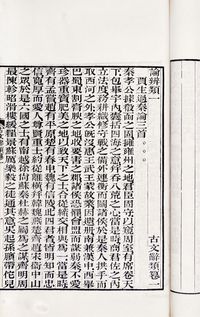 論辨類一　古文辭類纂一
賈生過秦論三首
秦孝公據殽函之固擁雍州之地君臣固守以窺周室有席卷天
下包舉宇內囊括四海之意并吞八荒之心當是時商君佐之內
立法度務耕織修守戰之備外連衡而鬭諸侯於是秦人拱手而
取西河之外孝公既沒惠王武王蒙故業因遺冊南兼漢中西舉
巴蜀東割膏腴之地收要害之郡諸侯恐懼會盟而謀弱秦不愛
珍器重寶肥美之地以致天下之士合從締交相與為一當是時
齊有孟嘗趙有平原楚有春申魏有信陵此四君者皆明知而忠
信寬厚而愛人尊賢重士約從離橫兼韓魏燕楚齊趙宋衞中山
之眾於是六國之士有甯越徐尚蘇秦杜赫之屬為之謀齊明周
最陳軫昭滑樓緩翟景蘇厲樂毅之徒通其意吳起孫臏帶佗兒